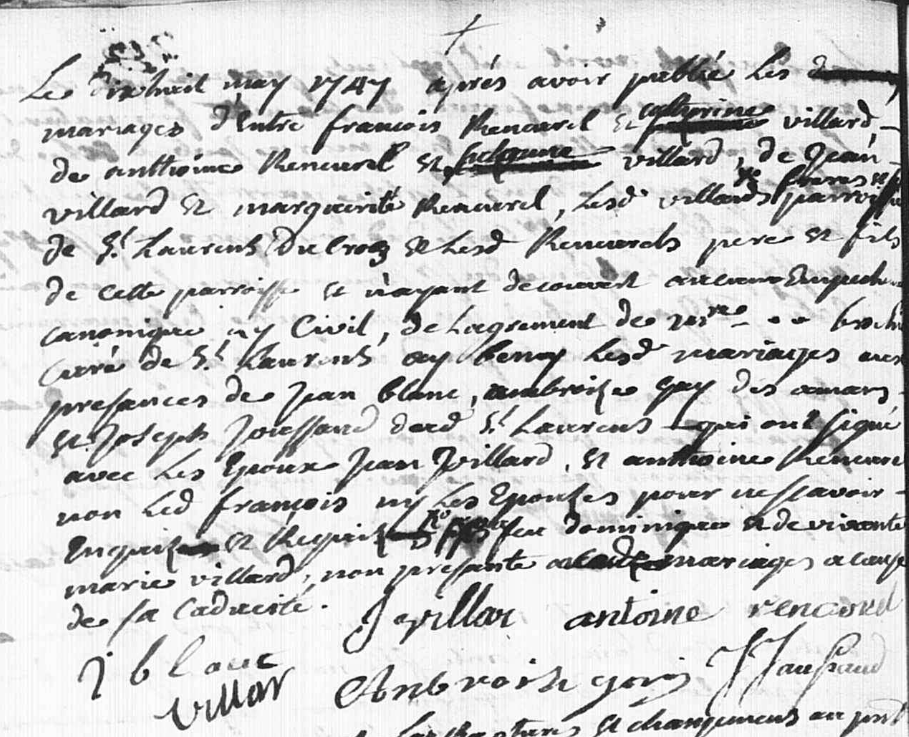 Le dixhuit may 1747 aprés avoir publié Les
mariages d'Entre françois Rencurel et catherine villard,
de anthoine Rencurel et villard, de Jean
villard et marguerite Rencurel, Lesd villards freres parroisse
de St Laurens du Cros et Lesd Rencurels pere et fils
de cette parroisse et n'ayant decouvert aucun Empech
canonique ny Civil, de Lagrement de brochi
Curé de St Laurens ay beny Lesd mariages aux
presances de Jean blanc, ambroise gay des
et Joseph Joussaud dud St Laurens qui ont signé
avec Les Epoux Jean villard, et anthoine Rencurel
non Led françois ny Les Epouses pour ne scavoir
Enquis et Requis feu dominique et de vivante
marie villard, non presante mariages a cause
de sa Caducité. J villar antoine rencurel
J blanc
villar Anbroise J Jaussaud
et changemens au pnt